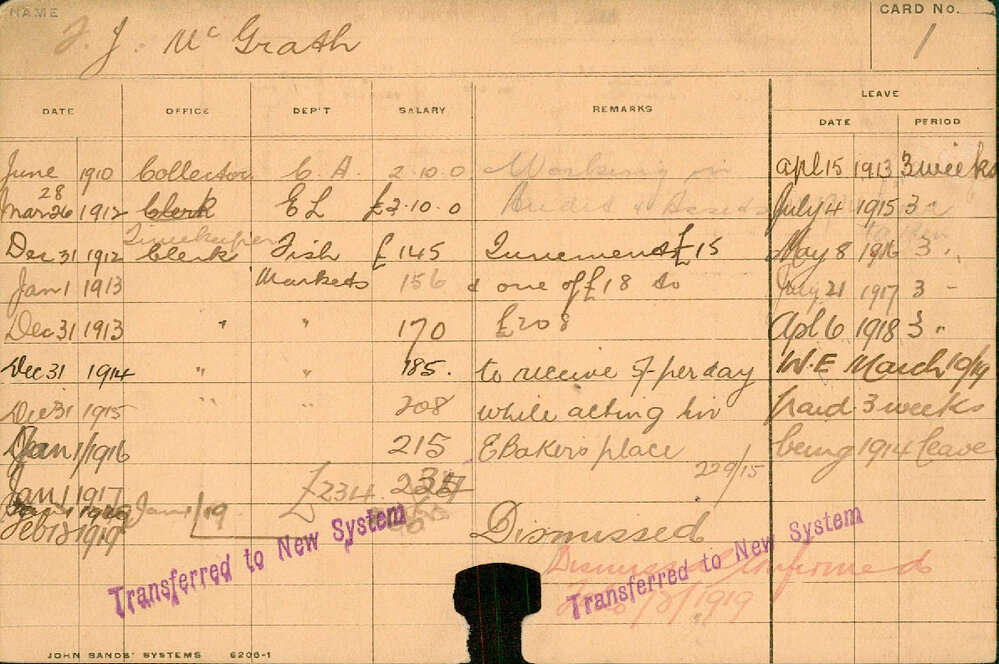 NAME
J. J. McGrath
CARD No.
1
DATE OFFICE DEP'T SALARY REMARKS LEAVE
DATE PERIOD
June 1910 Collector C. A. 2.10.0 Working in
apl 15 1913 3 weeks
28
Mar 26 1912 Clerk EL £2.10.0 Audit &
July 4 1915 3 "
Timekeeper
Dec 31 1912 Clerk Fish £145 Increment £15
May 8 1916 3 "
Jan 1 1913 Markets 156 & one of £18 to
July 21 1917 3 "
Dec 31 1913 " " 170 £208
Apl 6 1918 3 "
Dec 31 1914 " " 185. to receive 5/- per day
W.E March 10/19
Dec 31 1915 " " 208 while acting in
paid 3 weeks
Jan 1/1916 215 E Baker's place
being 1914 leave
229/15
Jan 1 1917 £234.
Jan 1/19
Feb 1919 Dismissed
Transferred to New System
Dismissal Confirmed
Transferred to New System
1919
JOHN SANDS' SYSTEMS 6206-1